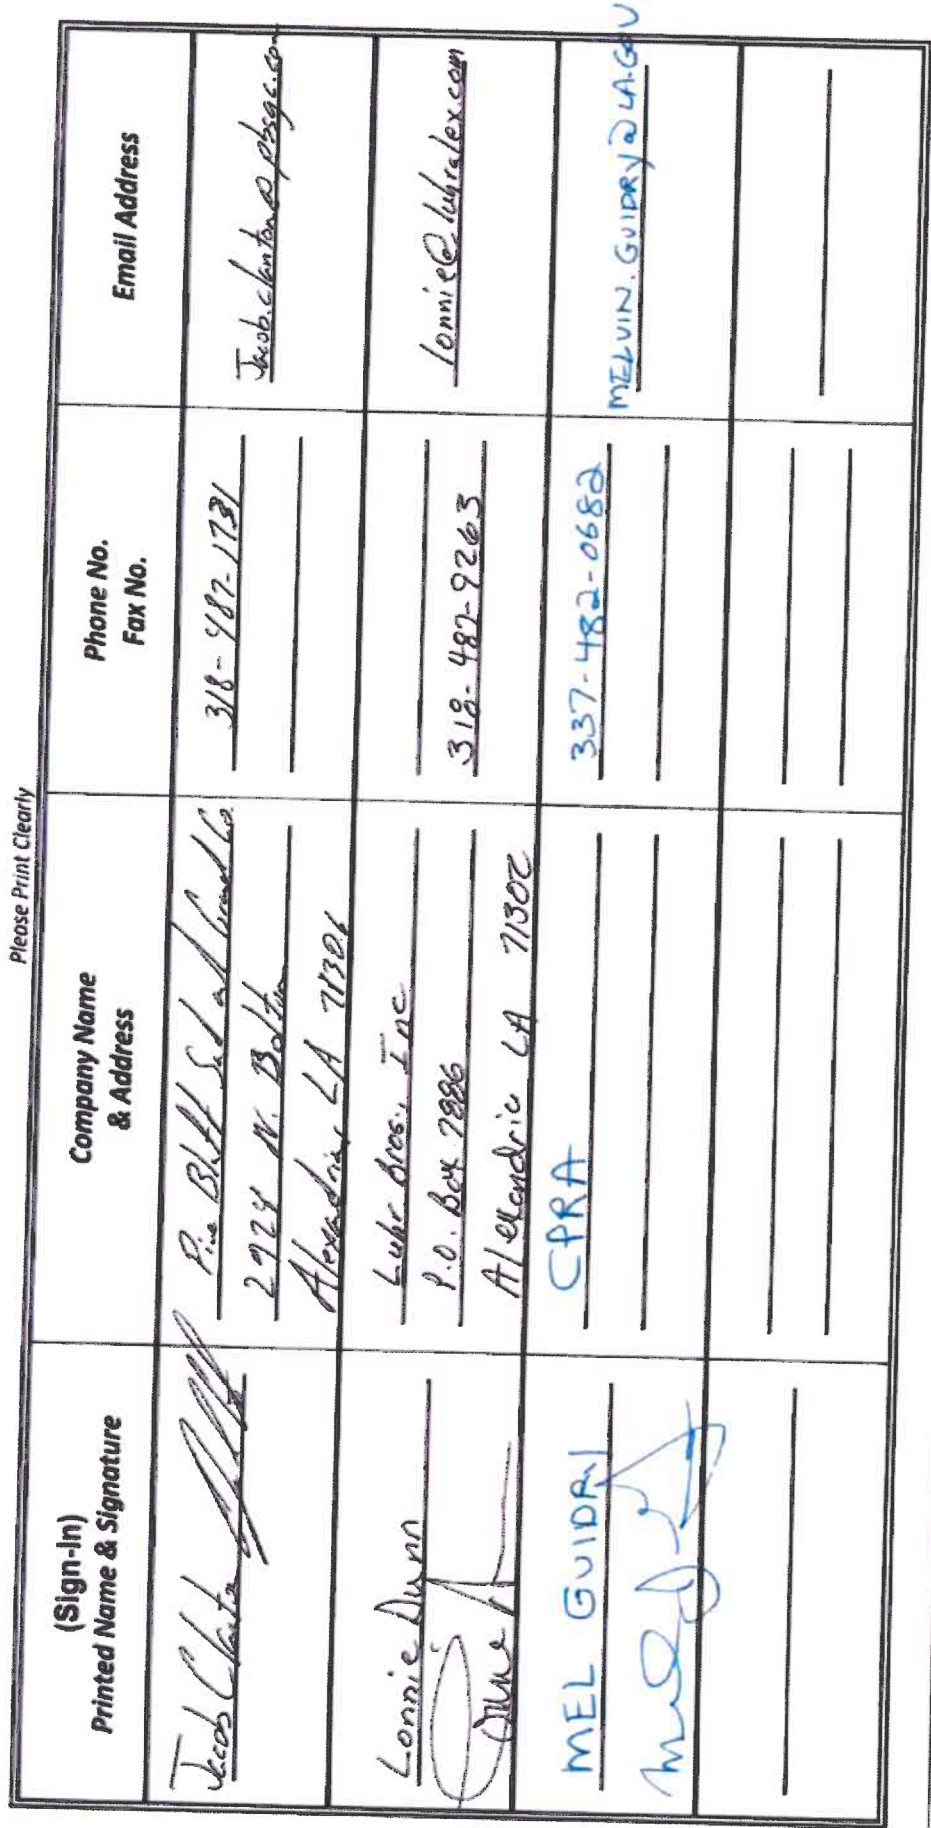 Please Print Clearly
(Sign-In)
Printed Name & Signature
Company Name
& Address
Phone No.
Fax No.
Email Address
Jacob Clanton
Pine Bluff Sand and Gravel Co.
2924 N. Bolton
Alexandria, LA 71306
318-487-1731
Jacob.clanton@pbsgc.com
Lonnie Dunn
Luhr Bros., Inc
P.O. Box 7886
Alexandria LA 71302
318-487-9263
lonnie@luhralex.com
MEL GUIDRY
CPRA
337-482-0682
MELVIN.GUIDRY@LA.GOV